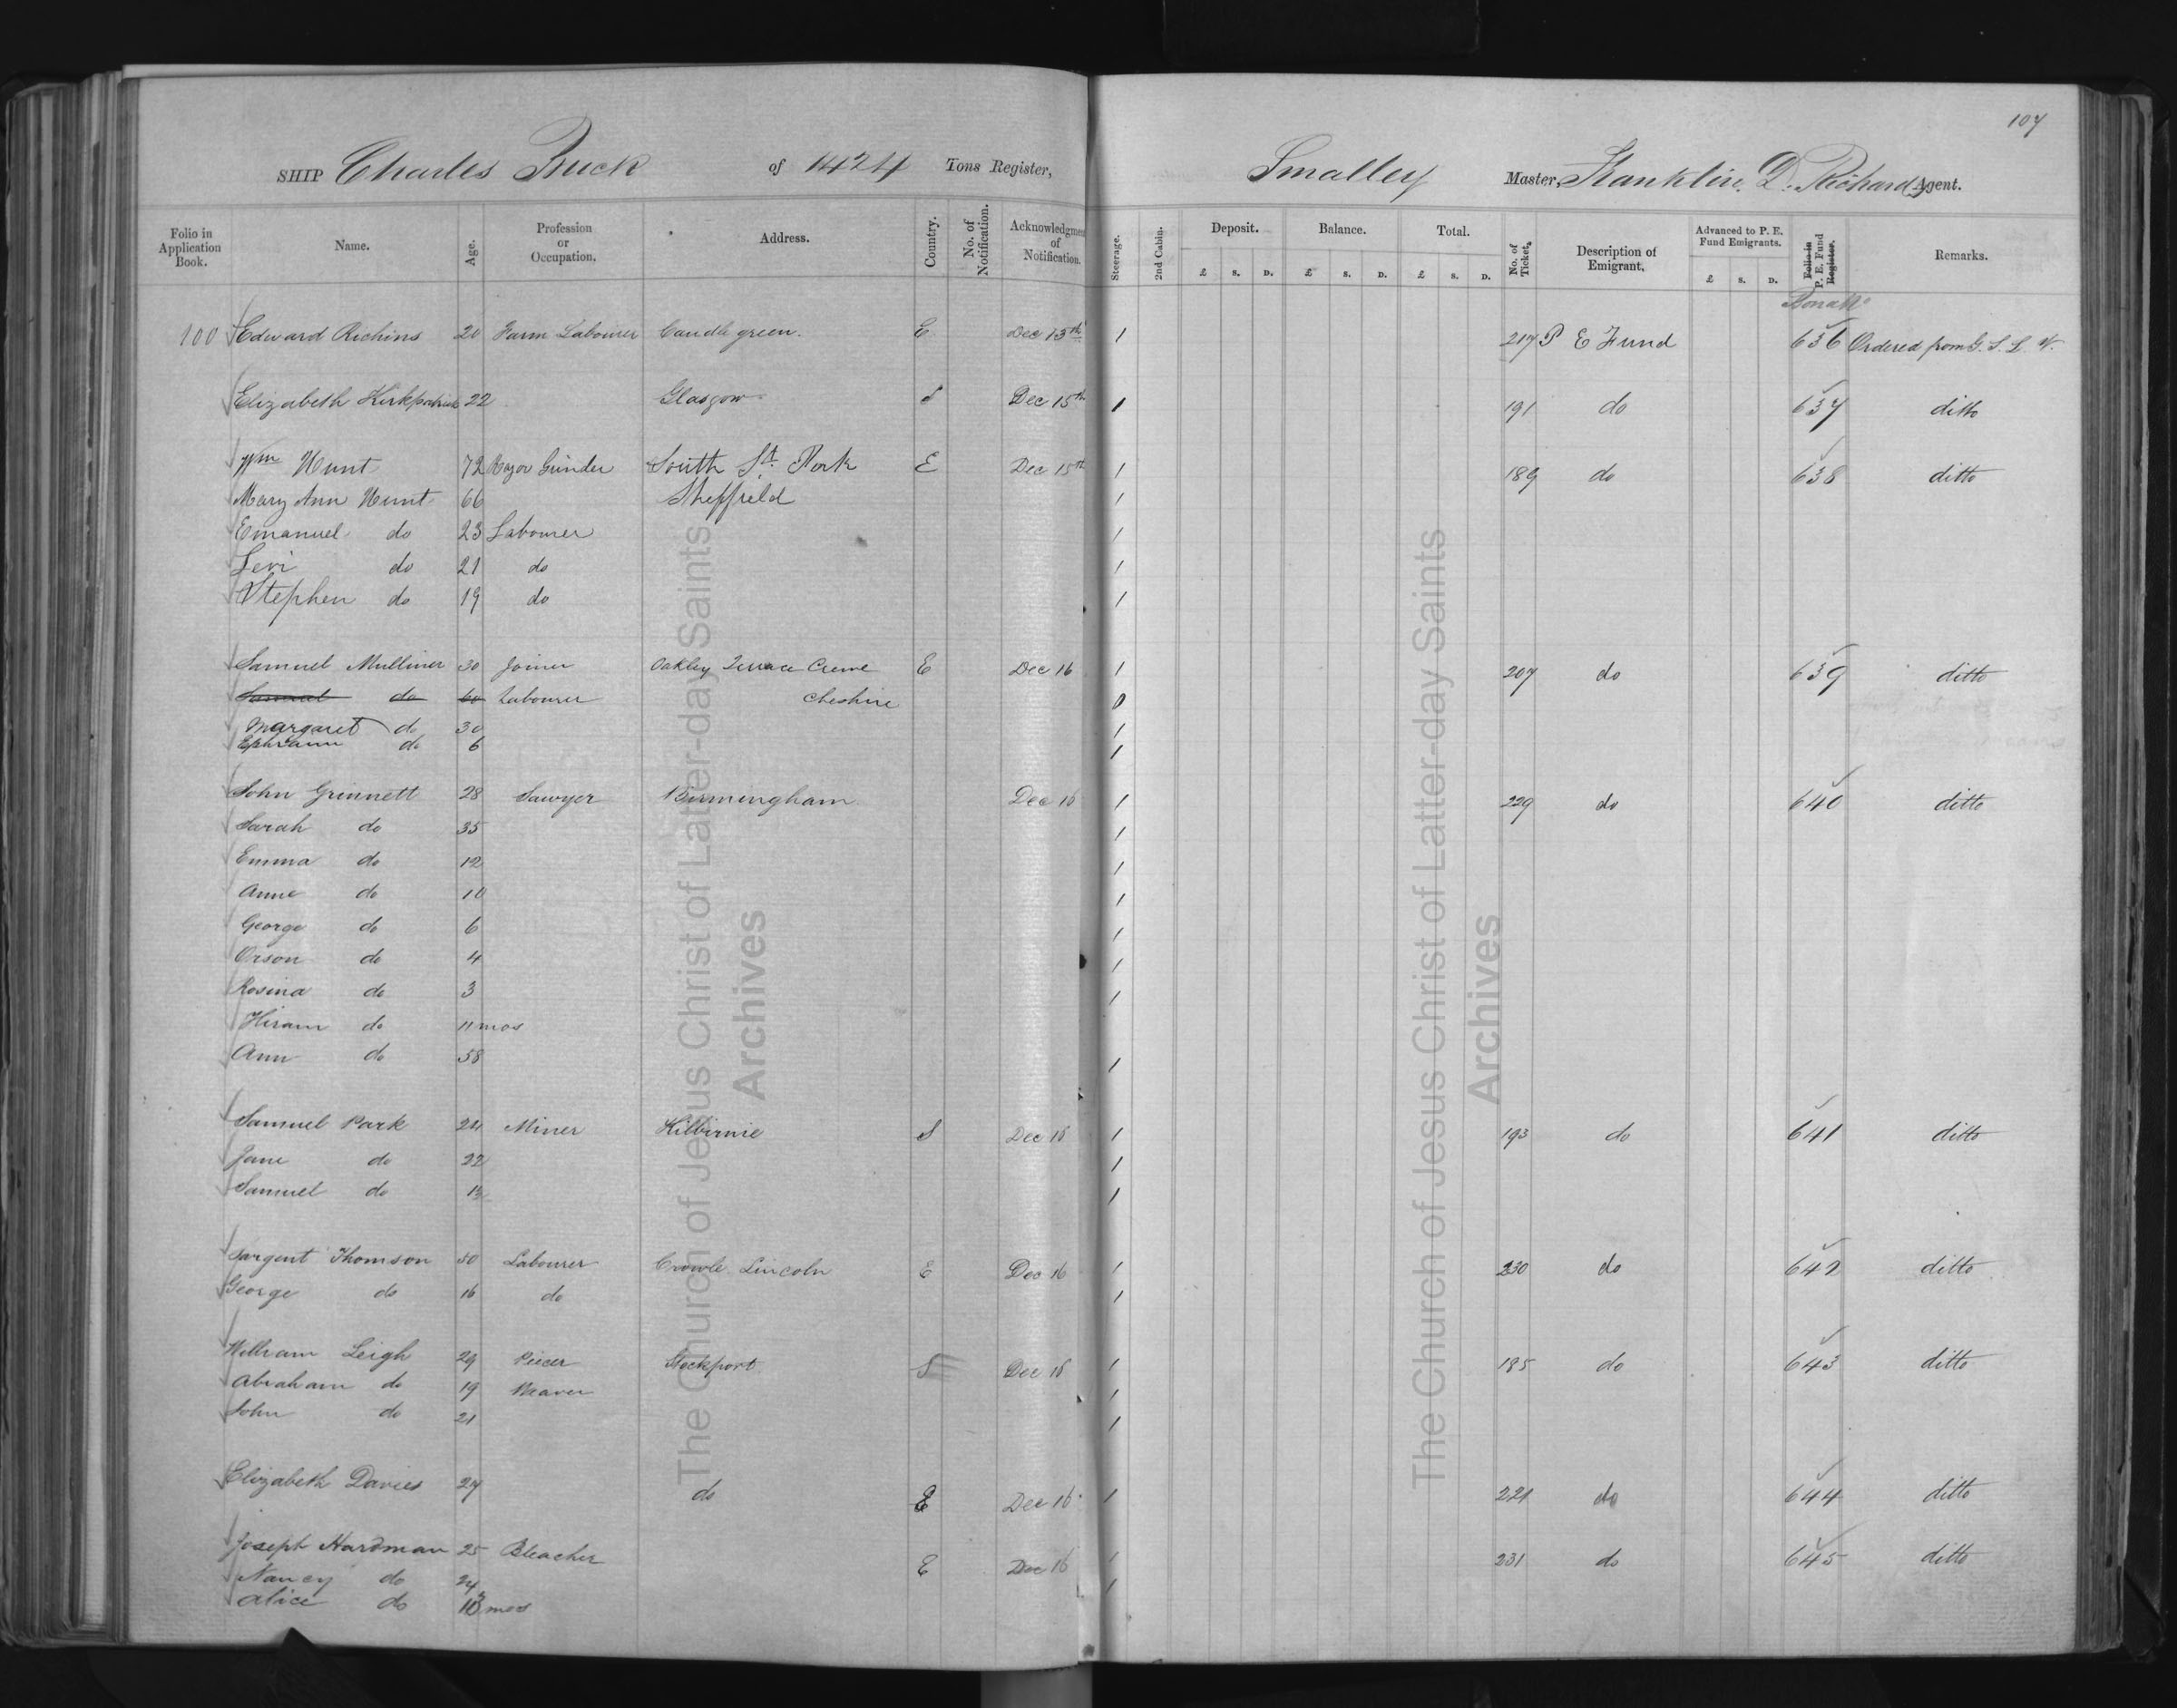 107
SHIP Charles Buck of 1424 Tons Register, Smalley Master, Franklin D. Richards Agent.
Folio in Application Book. Name. Age. Profession or Occupation. Address. Country. No. of Notification. Acknowledgment of Notification. Steerage. 2nd Cabin. Deposit. £ s. D. Balance. £ s. D. Total. £ s. D. No. of Ticket. Description of Emigrant. Advanced to P. E. Fund Emigrants. £ s. D. Folio in P. E. Fund Register. Remarks.
100 Edward Richins 20 Farm Labourer Caudle green. E Dec 15th 1 217 P E Fund 636 Ordered from G. S. L.
Elizabeth Kirkpatrick 22 Glasgow S Dec 15th 1 191 do 637 ditto
Wm Hunt 72 Razor Grinder South St. Park E Dec 15th 1 189 do 638 ditto
Mary Ann Hunt 66 Sheffield 1
Emanuel do 23 Labourer 1
Levi do 21 do 1
Stephen do 19 do 1
Samuel Mulliner 30 Joiner Oakley Terrace Crewe E Dec 16 1 207 do 639 ditto
Samuel do 60 Labourer Cheshire 0
Margaret do 30 1
Ephraim do 6 1
John Grinnett 28 Sawyer Birmingham Dec 16 1 229 do 640 ditto
Sarah do 35 1
Emma do 12 1
Anne do 10 1
George do 6 1
Orson do 4 1
Rosina do 3 1
Hiram do 11 mos
Ann do 58 1
Samuel Park 24 Miner Kilbirnie S Dec 16 1 193 do 641 ditto
Jane do 22 1
Samuel do 13 1
Sargent Thomson 50 Labourer Crowle Lincoln E Dec 16 1 230 do 642 ditto
George do 16 do 1
William Leigh 29 Piecer Stockport S Dec 16 1 185 do 643 ditto
Abraham do 19 Weaver 1
John do 21 1
Elizabeth Davies 27 do E Dec 16 1 221 do 644 ditto
Joseph Hardman 25 Bleacher E Dec 16 1 231 do 645 ditto
Nancy do 24 1
Alice do mos
The Church of Jesus Christ of Latter-day Saints
Archives
The Church of Jesus Christ of Latter-day Saints
Archives